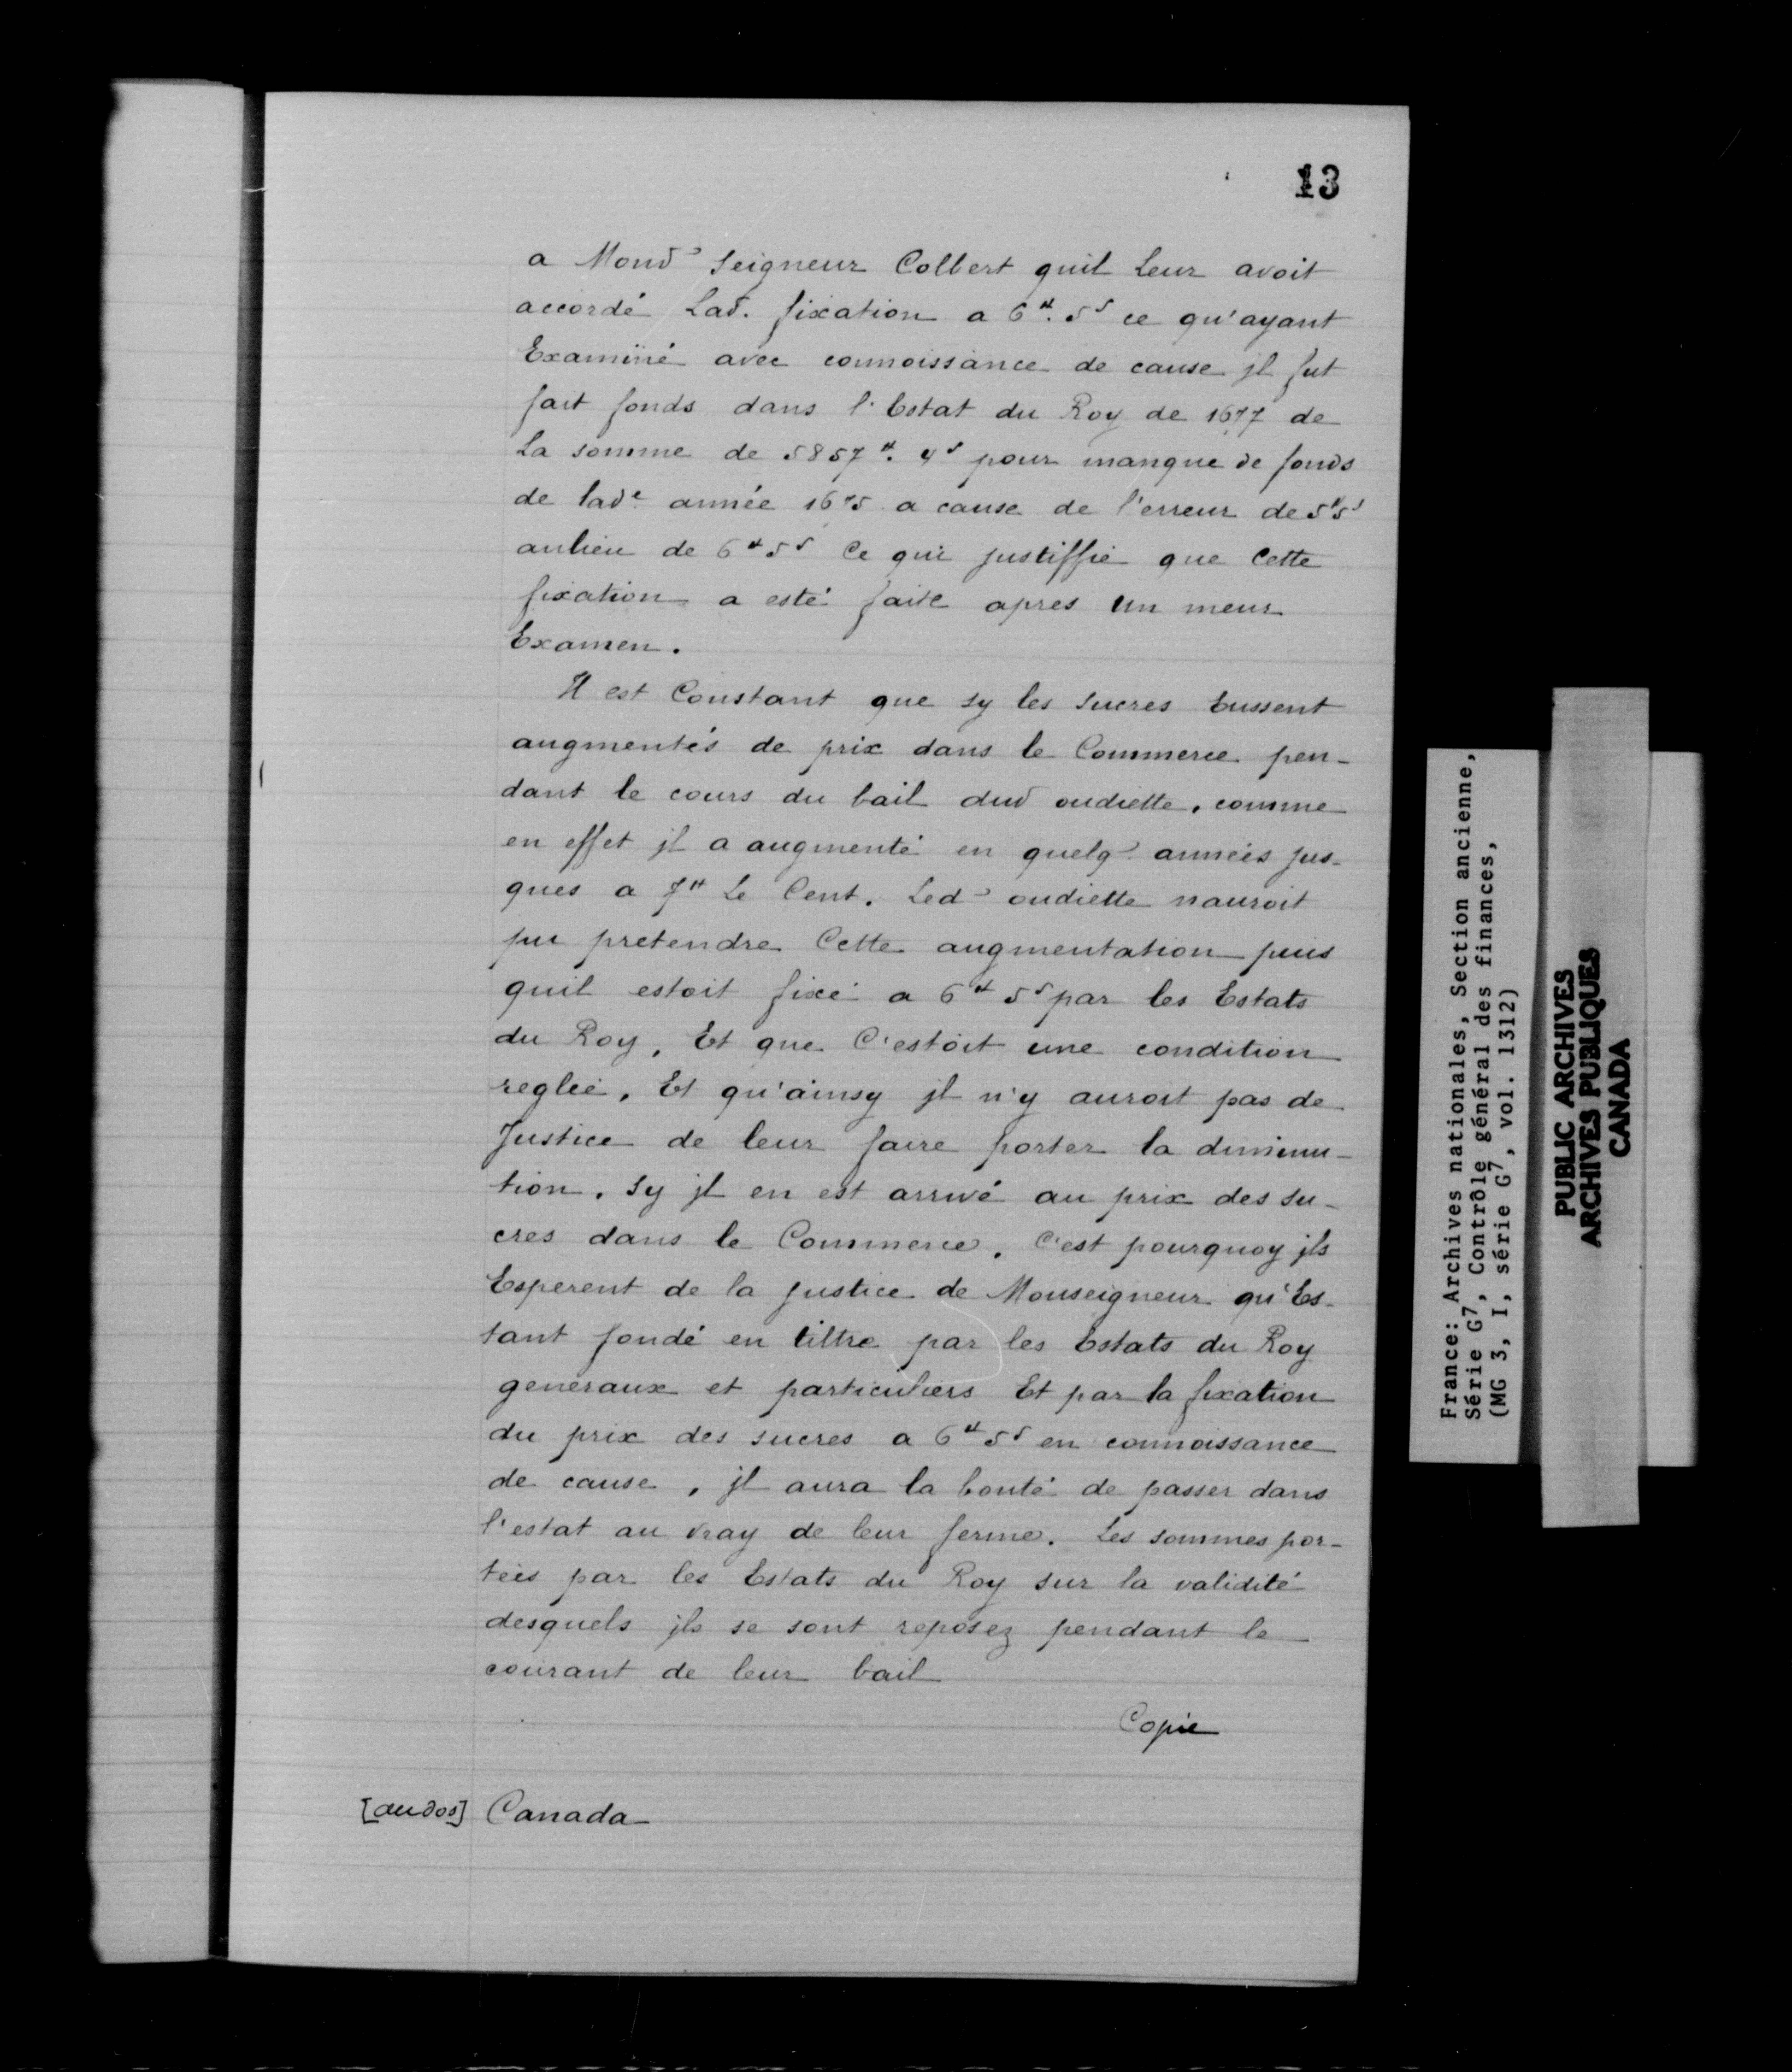 13
a Mond' Seigneur Colbert quil Leur avoit
accordé Lad. fixation a 6tt. 5s ce qu'ayant
Examiné avec connoissance de cause jl fut
fait fonds dans l'Estat du Roy de 1677 de
La somme de 5857tt. 4s pour manque de fonds
de lade année 1675 a cause de l'erreur de 5tt5s
aulieu de 6tt 5s Ce qui justiffie que Cette
fixation a esté faite apres un meur
Examen.
Il est Constant que sy les sucres Eussent
augmentés de prix dans le Commerce pen-
dant le cours du bail dud oudiette, comme
en effet jl a augmenté en quelq' années jus-
ques a 7tt Le Cent. Led' oudiette nauroit
pu pretendre Cette augmentation puis
quil estoit fixé a 6tt 5s par les Estats
du Roy, Et que C'estoit une condition
reglée, Et qu'ainsy jl n'y auroit pas de
Justice de leur faire porter la diminu-
tion. Sy jl en est arrivé au prix des su-
cres dans le Commerce. C'est pourquoy jls
Esperent de la justice de Monseigneur qu'Es-
tant fondé en tiltre par les Estats du Roy
generaux et particuliers Et par la fixation
du prix des sucres a 6tt 5s en connoissance
de cause, jl aura la bonté de passer dans
l'estat au vray de leur ferme. Les sommes por-
tées par les Estats du Roy sur la validité
desquels jls se sont reposez pendant le
courant de leur bail
Copie
[au dos] Canada
France: Archives nationales, Section ancienne,
Série G7, Contrôle général des finances,
(MG 3, I, série G7, vol. 1312)
PUBLIC ARCHIVES
ARCHIVES PUBLIQUES
CANADA